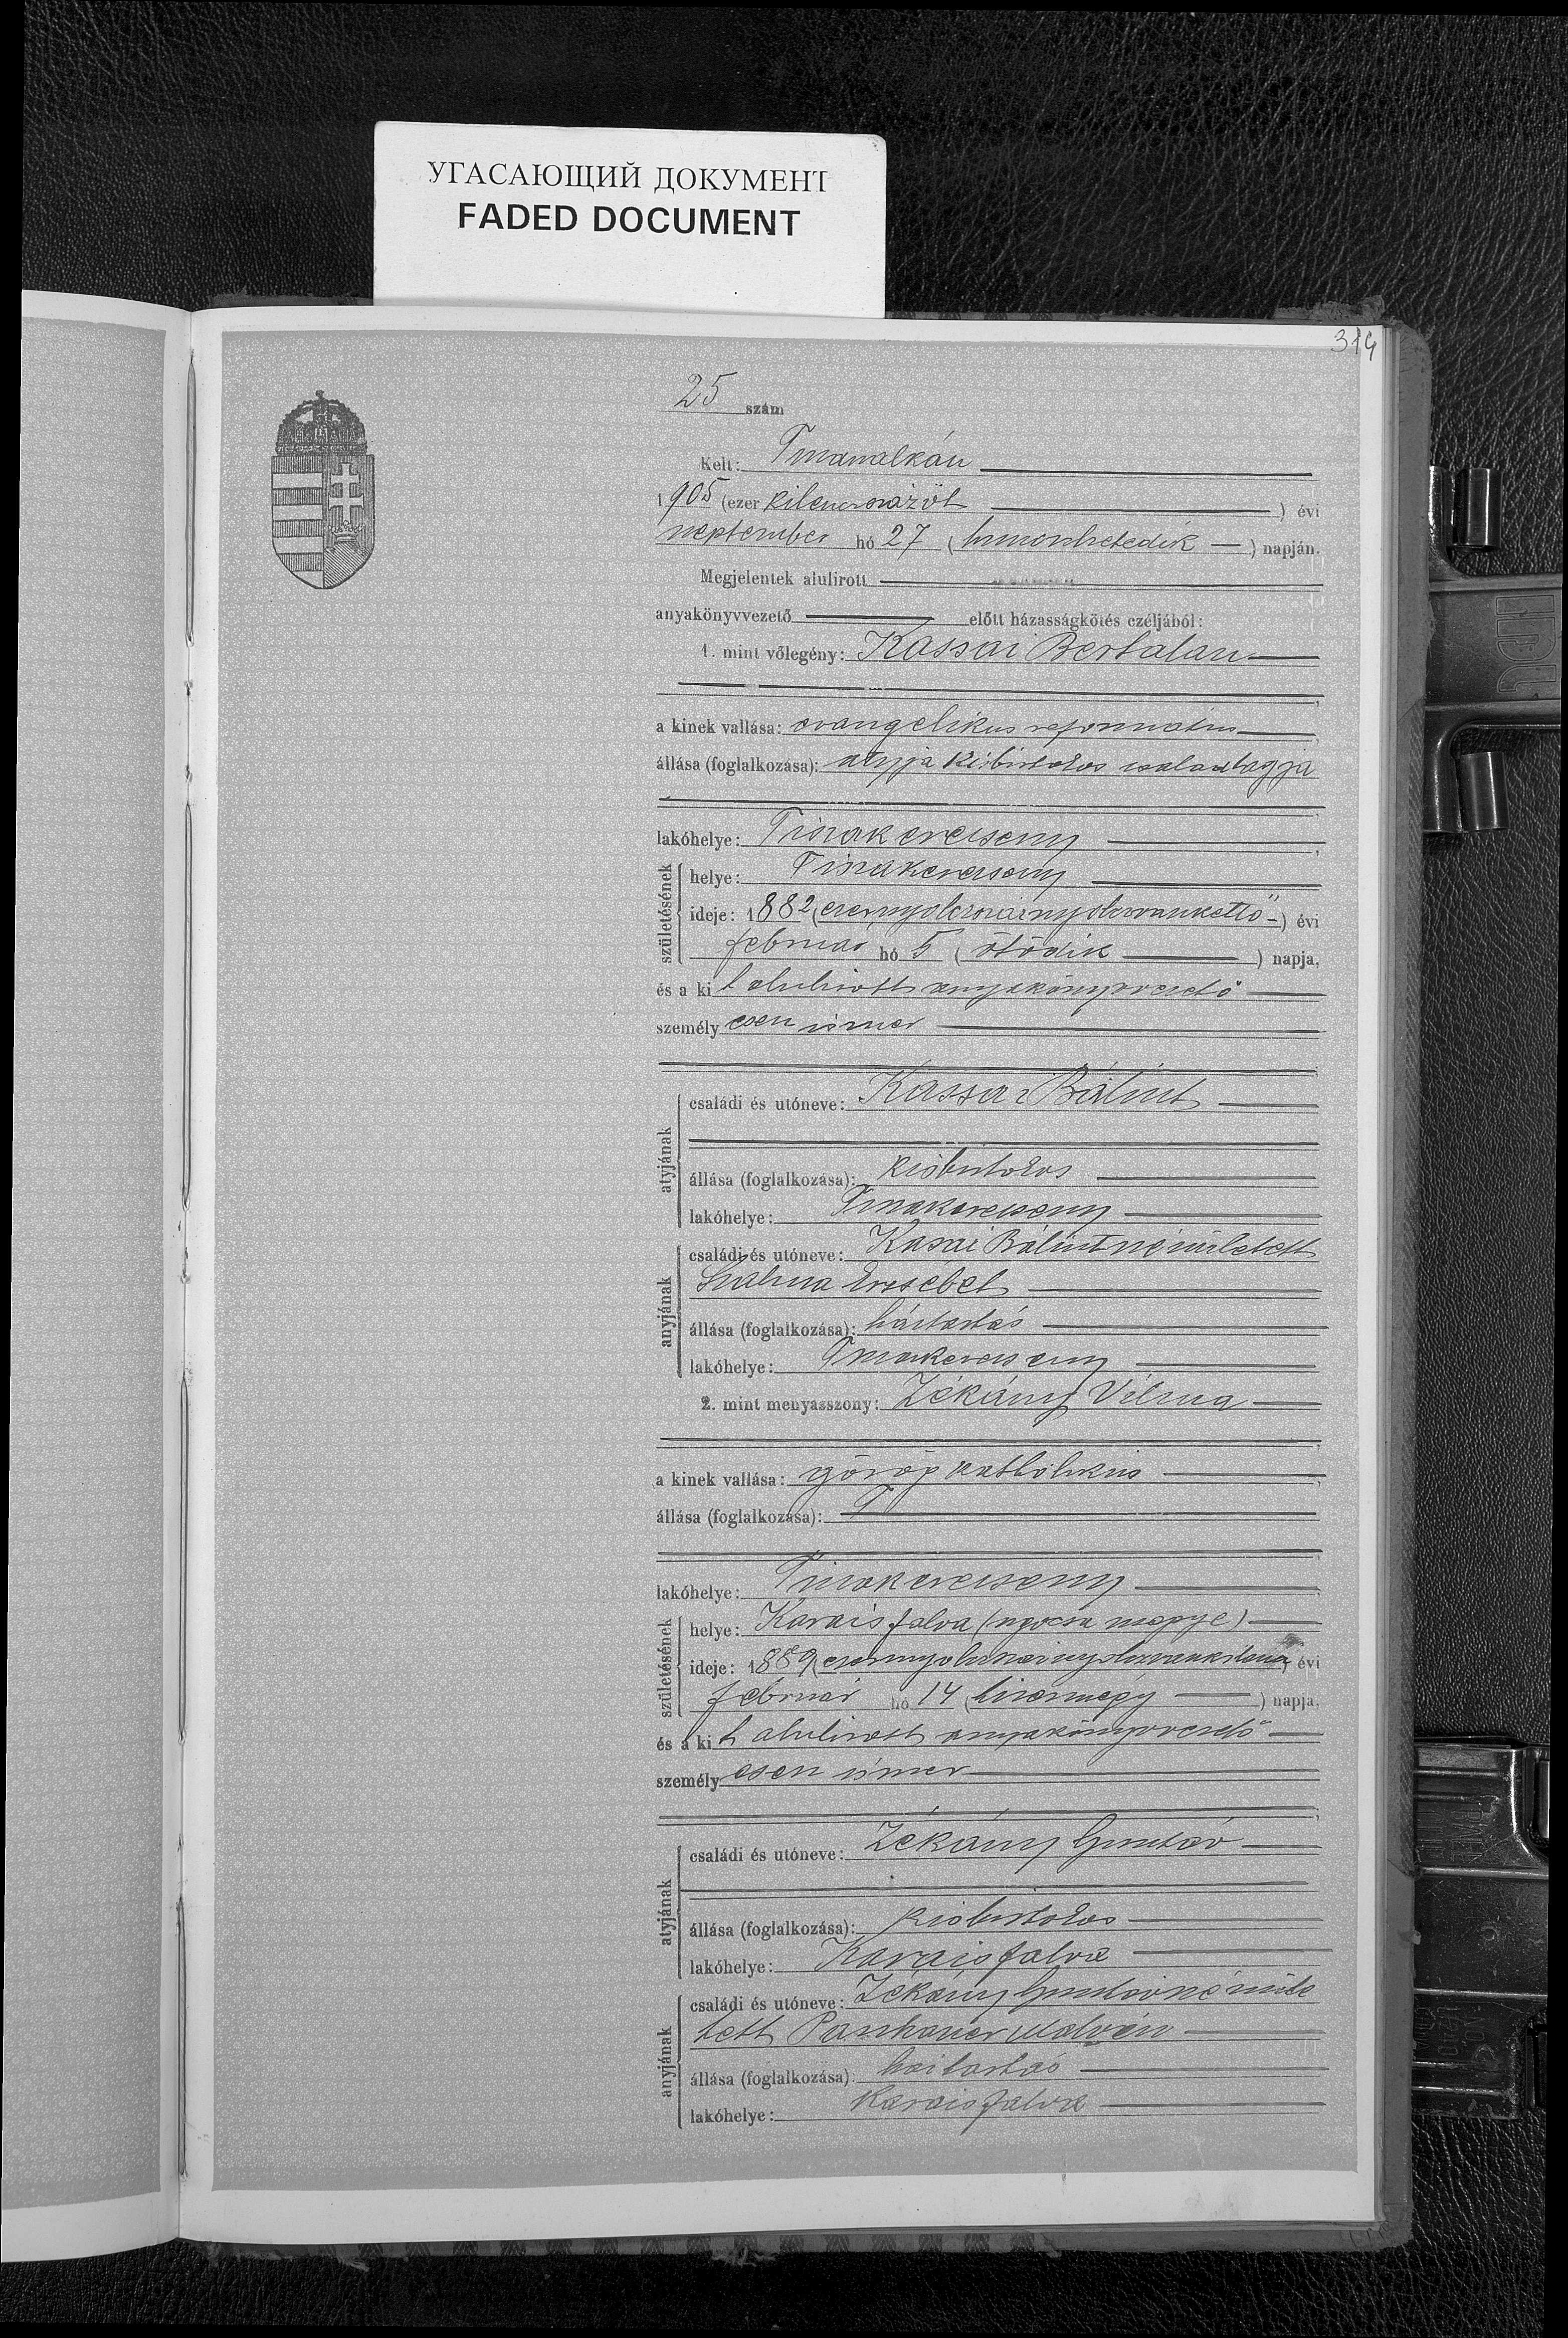 УГАСАЮЩИЙ ДОКУМЕНТ
FADED DOCUMENT
314
25 szám
Kelt: Tiszasalkán
1905 (ezer kilenczszázöt) évi
szeptember hó 27 (huszonhetedik) napján.
Megjelentek alulirott
anyakönyvvezető előtt házasságkötés czéljából:
1. mint vőlegény: Kassai Bertalan
a kinek vallása: evangelikus református
állása (foglalkozása): atyja kisbirtokos családtagja
lakóhelye: Tiszakerecseny
születésének
helye: Tiszakerecseny
ideje: 1882 (ezernyolczszáznyolczvankettő) évi
február hó 5 (ötödik) napja,
és a kit alulirott anyakönyvvezető
személyesen ismer
atyjának
családi és utóneve: Kassai Bálint
állása (foglalkozása): kisbirtokos
lakóhelye: Tiszakerecseny
anyjának
családi és utóneve: Kasai Bálintné született
Szalma Erzsébet
állása (foglalkozása): háztartás
lakóhelye: Tiszakerecseny
2. mint menyasszony: Zékány Vilma
a kinek vallása: görög katholikus
állása (foglalkozása):
lakóhelye: Tiszakerecseny
születésének
helye: Karácsfalva (ugocsa megye)
ideje: 1889 (ezernyolczszáznyolczvankilencz) évi
február hó 14 (tizennégy) napja,
és a kit alulirott anyakönyvvezető
személyesen ismer
atyjának
családi és utóneve: Zékány Gusztáv
állása (foglalkozása): kisbirtokos
lakóhelye: Karácsfalva
anyjának
családi és utóneve: Zékány Gusztávné szüle
tett Malvin
állása (foglalkozása): háztartás
lakóhelye: Karácsfalva